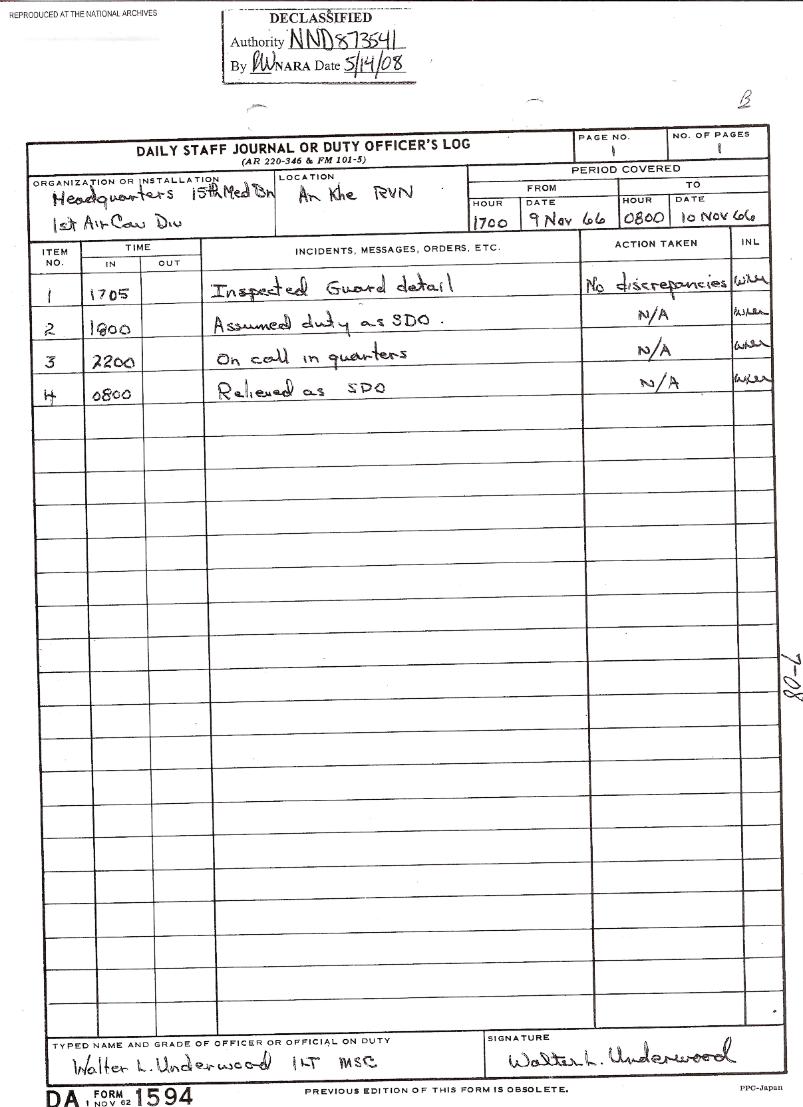 REPRODUCED AT THE NATIONAL ARCHIVES
DECLASSIFIED
Authority NND873541
By NARA Date 5/14/08
B
DAILY STAFF JOURNAL OR DUTY OFFICER'S LOG
(AR 220-346 & FM 101-5)
PAGE NO.
1
NO. OF PAGES
1
ORGANIZATION OR INSTALLATION
Headquarters 15th Med Bn
1st Air Cav Div
LOCATION
An Khe RVN
PERIOD COVERED
FROM
TO
HOUR
DATE
HOUR
DATE
1700
9 Nov 66
0800
10 Nov 66
ITEM NO.
TIME
IN
OUT
INCIDENTS, MESSAGES, ORDERS, ETC.
ACTION TAKEN
INL
1 1705 Inspected Guard detail No discrepancies
2 1800 Assumed duty as SDO. N/A
3 2200 On call in quarters N/A
4 0800 Relieved as SDO N/A
7-08
TYPED NAME AND GRADE OF OFFICER OR OFFICIAL ON DUTY
Walter L. Underwood 1LT MSC
SIGNATURE
Walter L. Underwood
DA FORM 1 NOV 62 1594
PREVIOUS EDITION OF THIS FORM IS OBSOLETE.
PPC-Japan